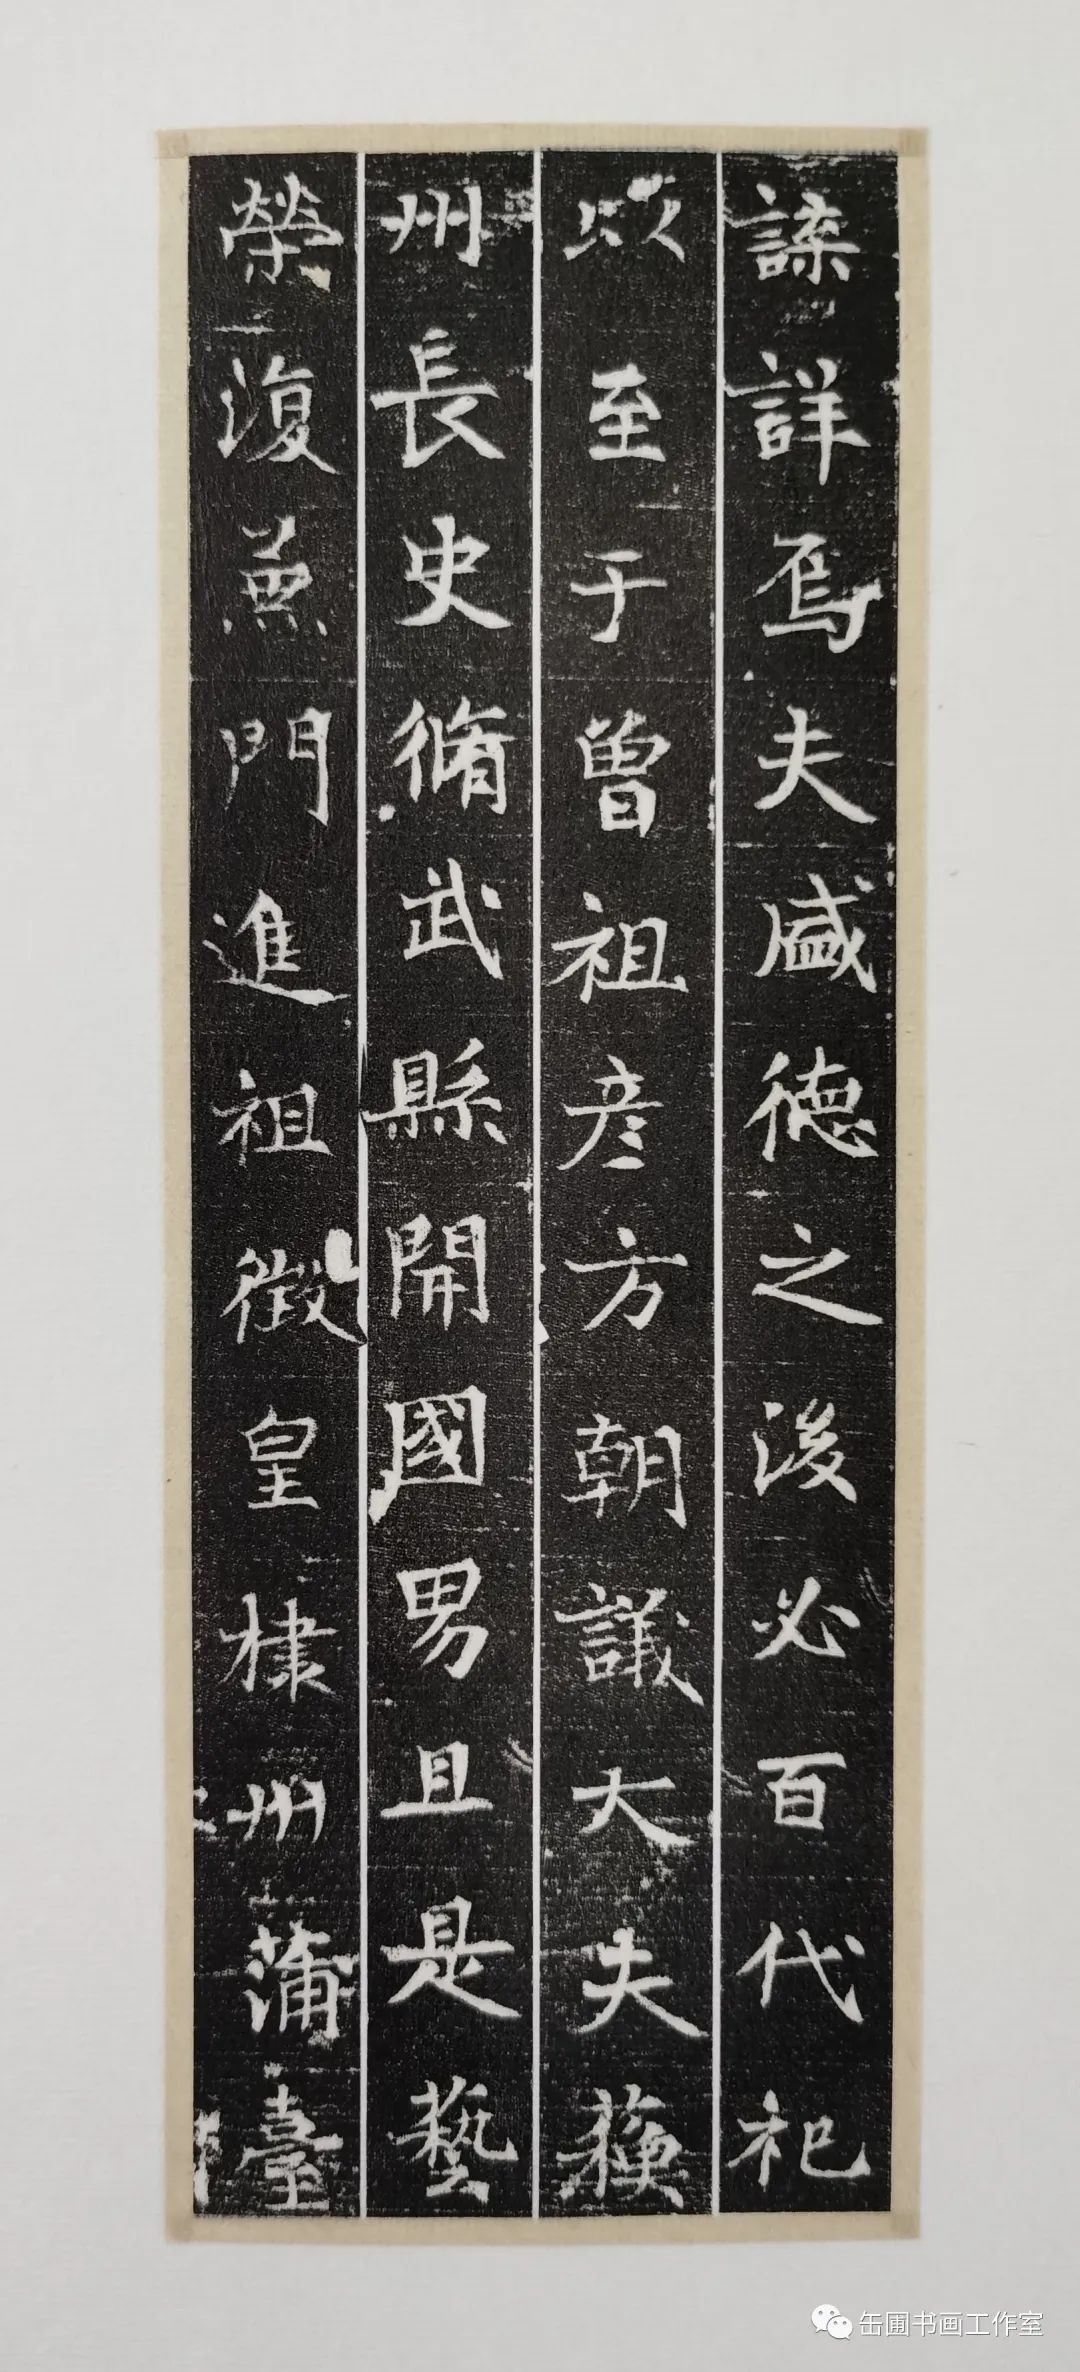 諜詳焉夫盛德之後必百代祀
以至于曾祖彦方朝議大夫䕶
州長史脩武縣開國男且是藝
榮復燕門進祖徵皇棣州蒲臺
缶圃书画工作室